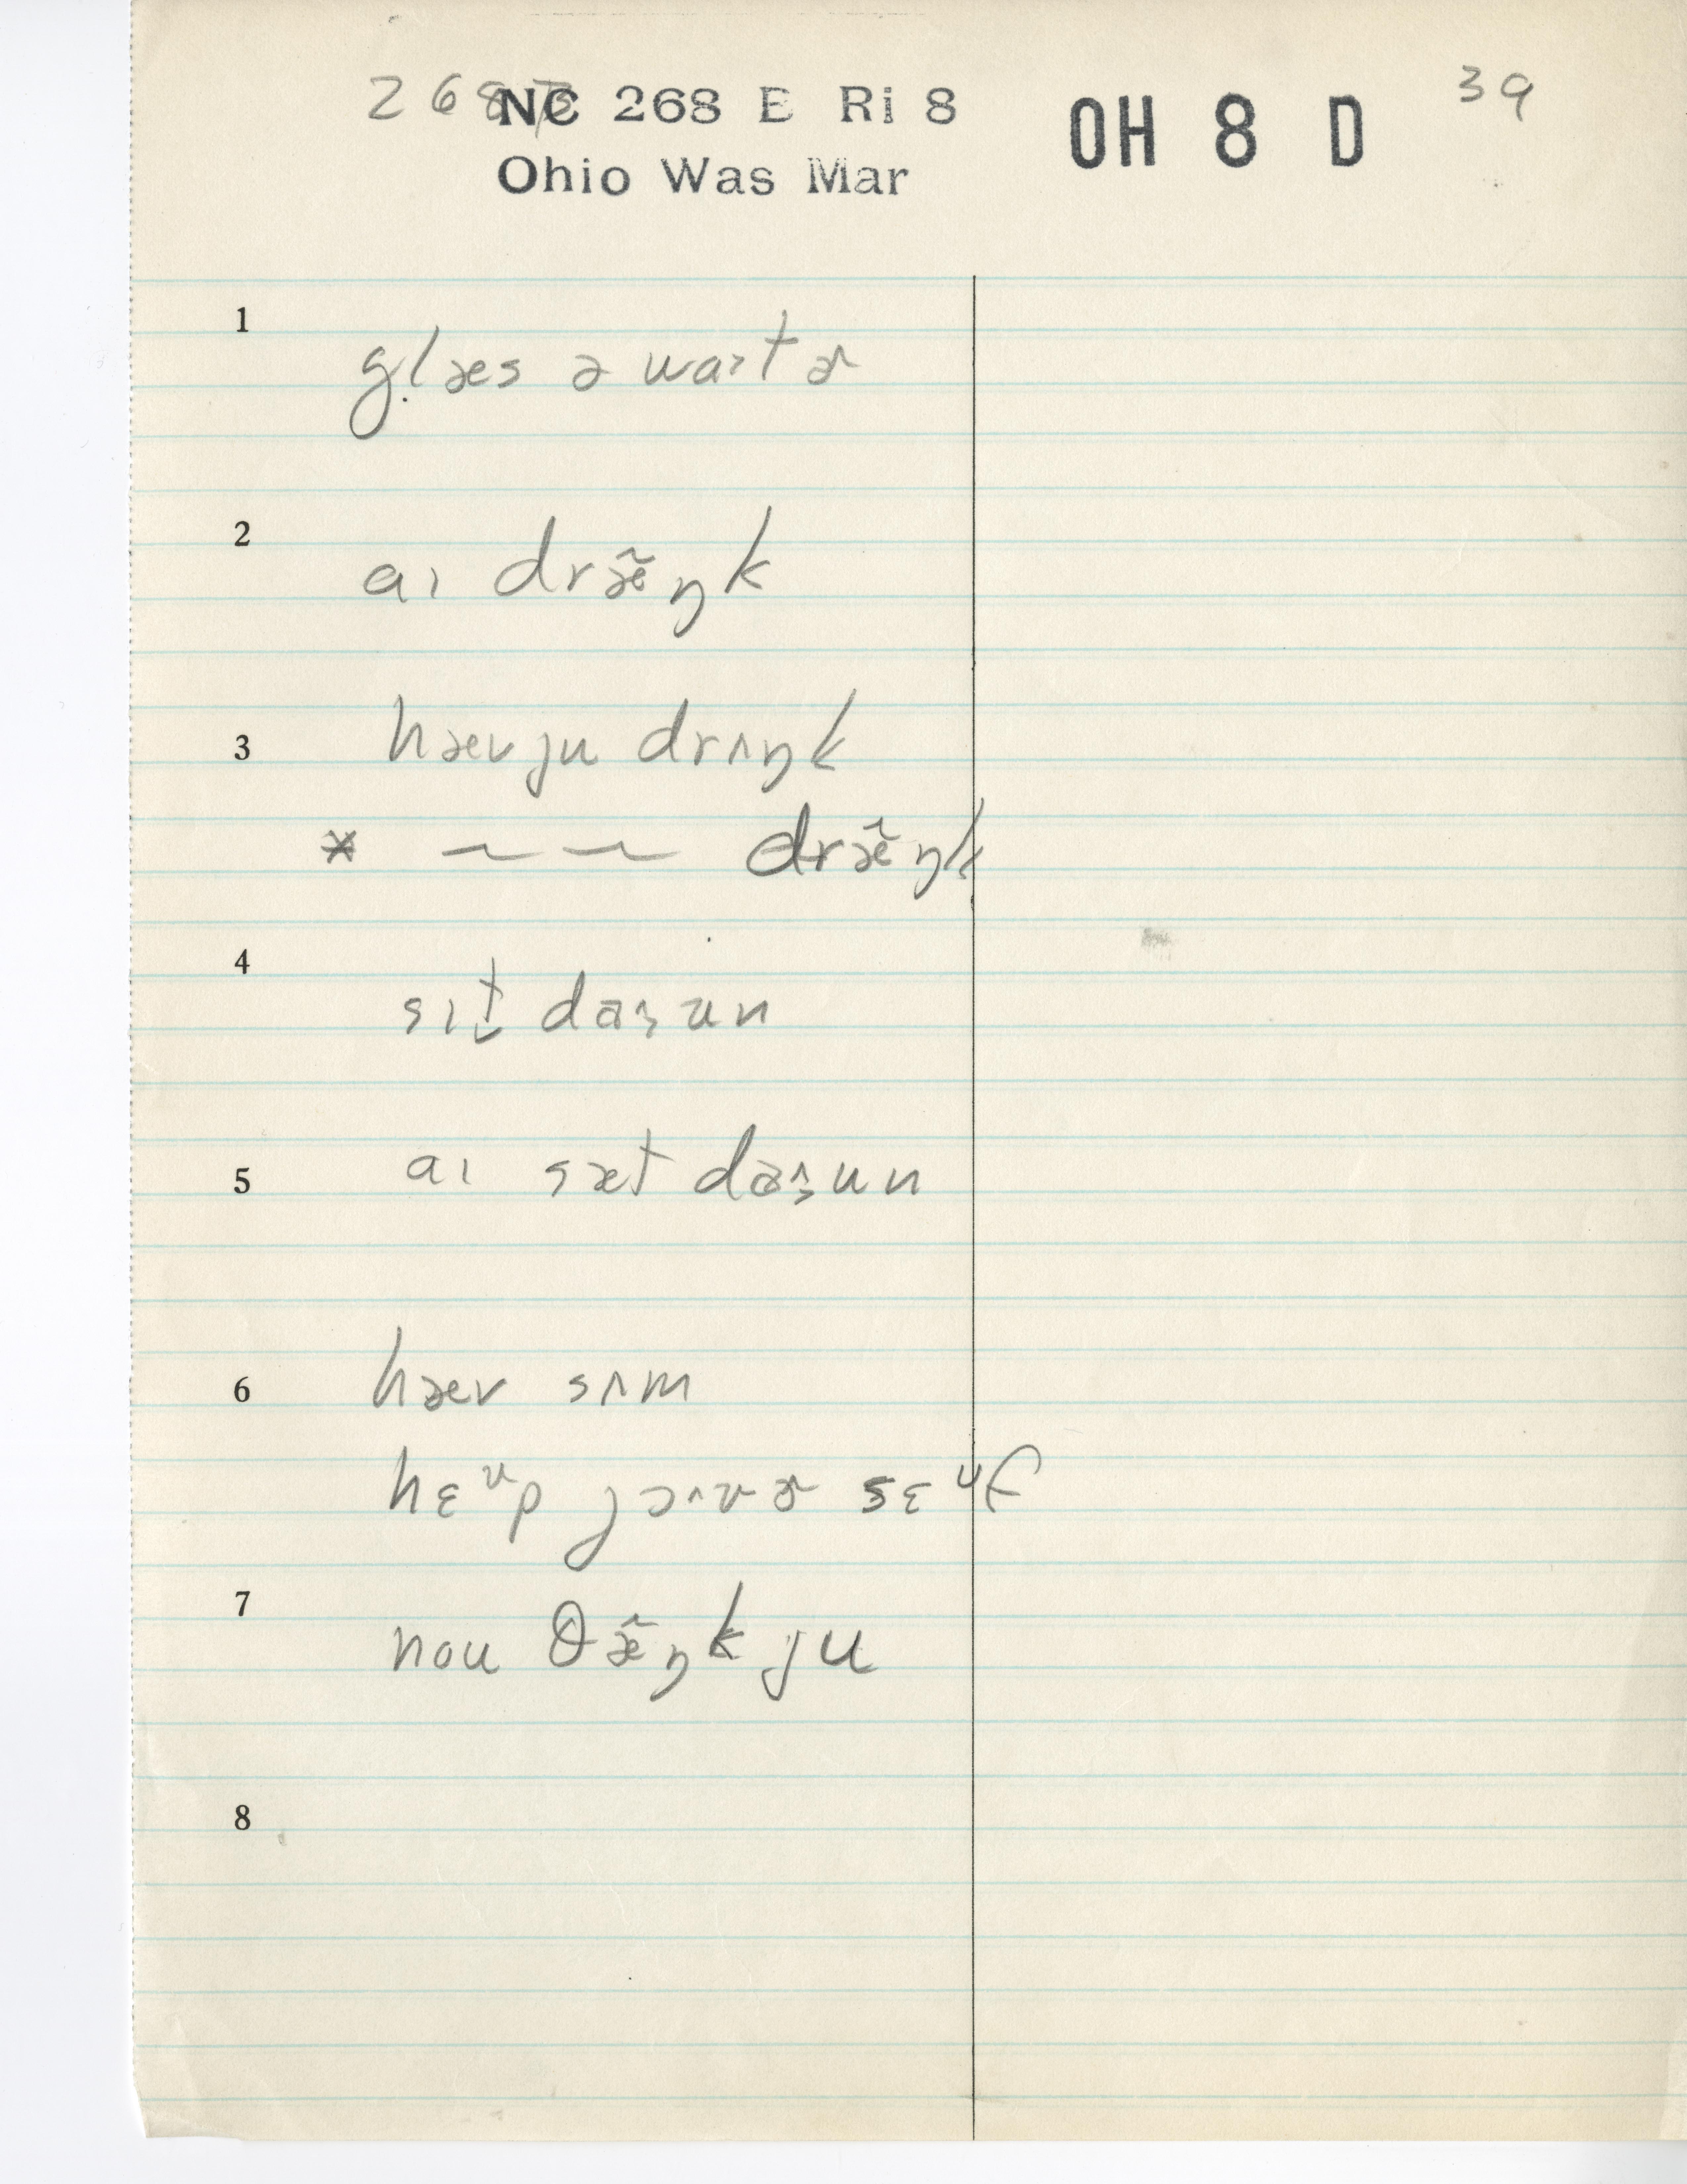 268B NC 268 B Ri 8 OH 8 D 39
Ohio Was Mar
1
gl̥æs ə waɪtɚ
2
aɪ dræ̃ŋk
3
hæv ju drʌŋk
* ~ ~ dræ̃ŋk
4
sɪt̬ daʊn
5
aɪ sæt daʊn
6
hæv sʌm
hɛᶷp jɔ˄vɚ sɛᶷf
7
noʊ θæ̃ŋk ju
8